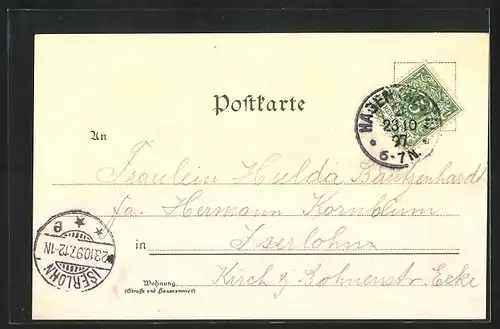 Postkarte
HAGEN
23 10
97
6-7N.
An
Fräulein Hulda Bautzenhardt
fa. Hermann Kornblum
in Iserlohn
Wohnung
(Straße und Hausnummer)
Kirch & Bohnenstr Ecke
ISERLOHN
23.10.97.12-1N.
e